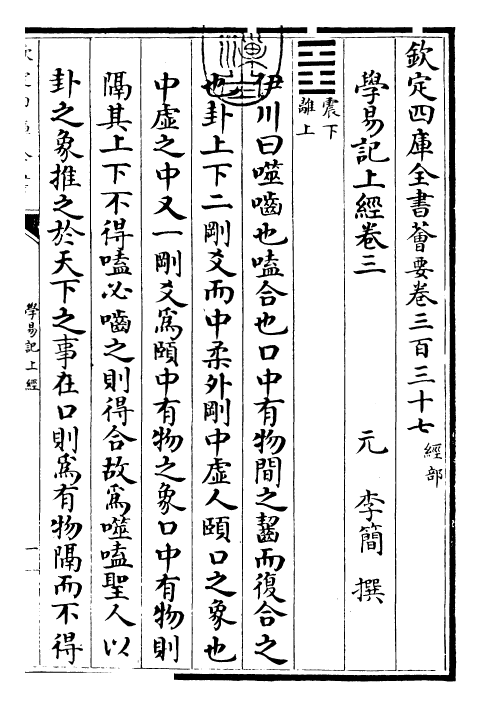 欽定四庫全書薈要卷三百三十七 經部
學易記上經卷三
元 李簡 撰
震下
離上
伊川曰噬嚙也嗑合也口中有物間之齧而復合之
也卦上下二剛爻而中柔外剛中虛人頤口之象也
中虛之中又一剛爻為頤中有物之象口中有物則
隔其上下不得嗑必嚙之則得合故為噬嗑聖人以
卦之象推之於天下之事在口則為有物隔而不得
學易記上經
一